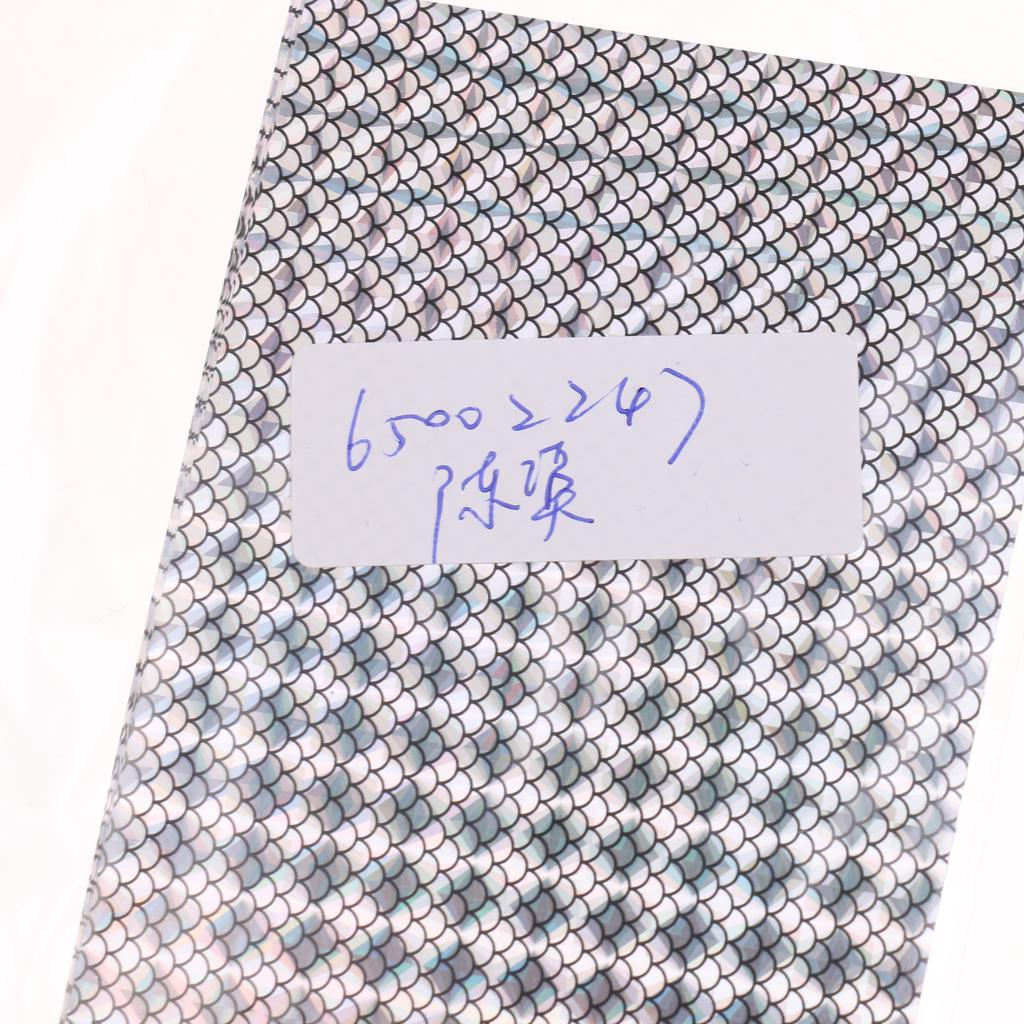 65002247
陈